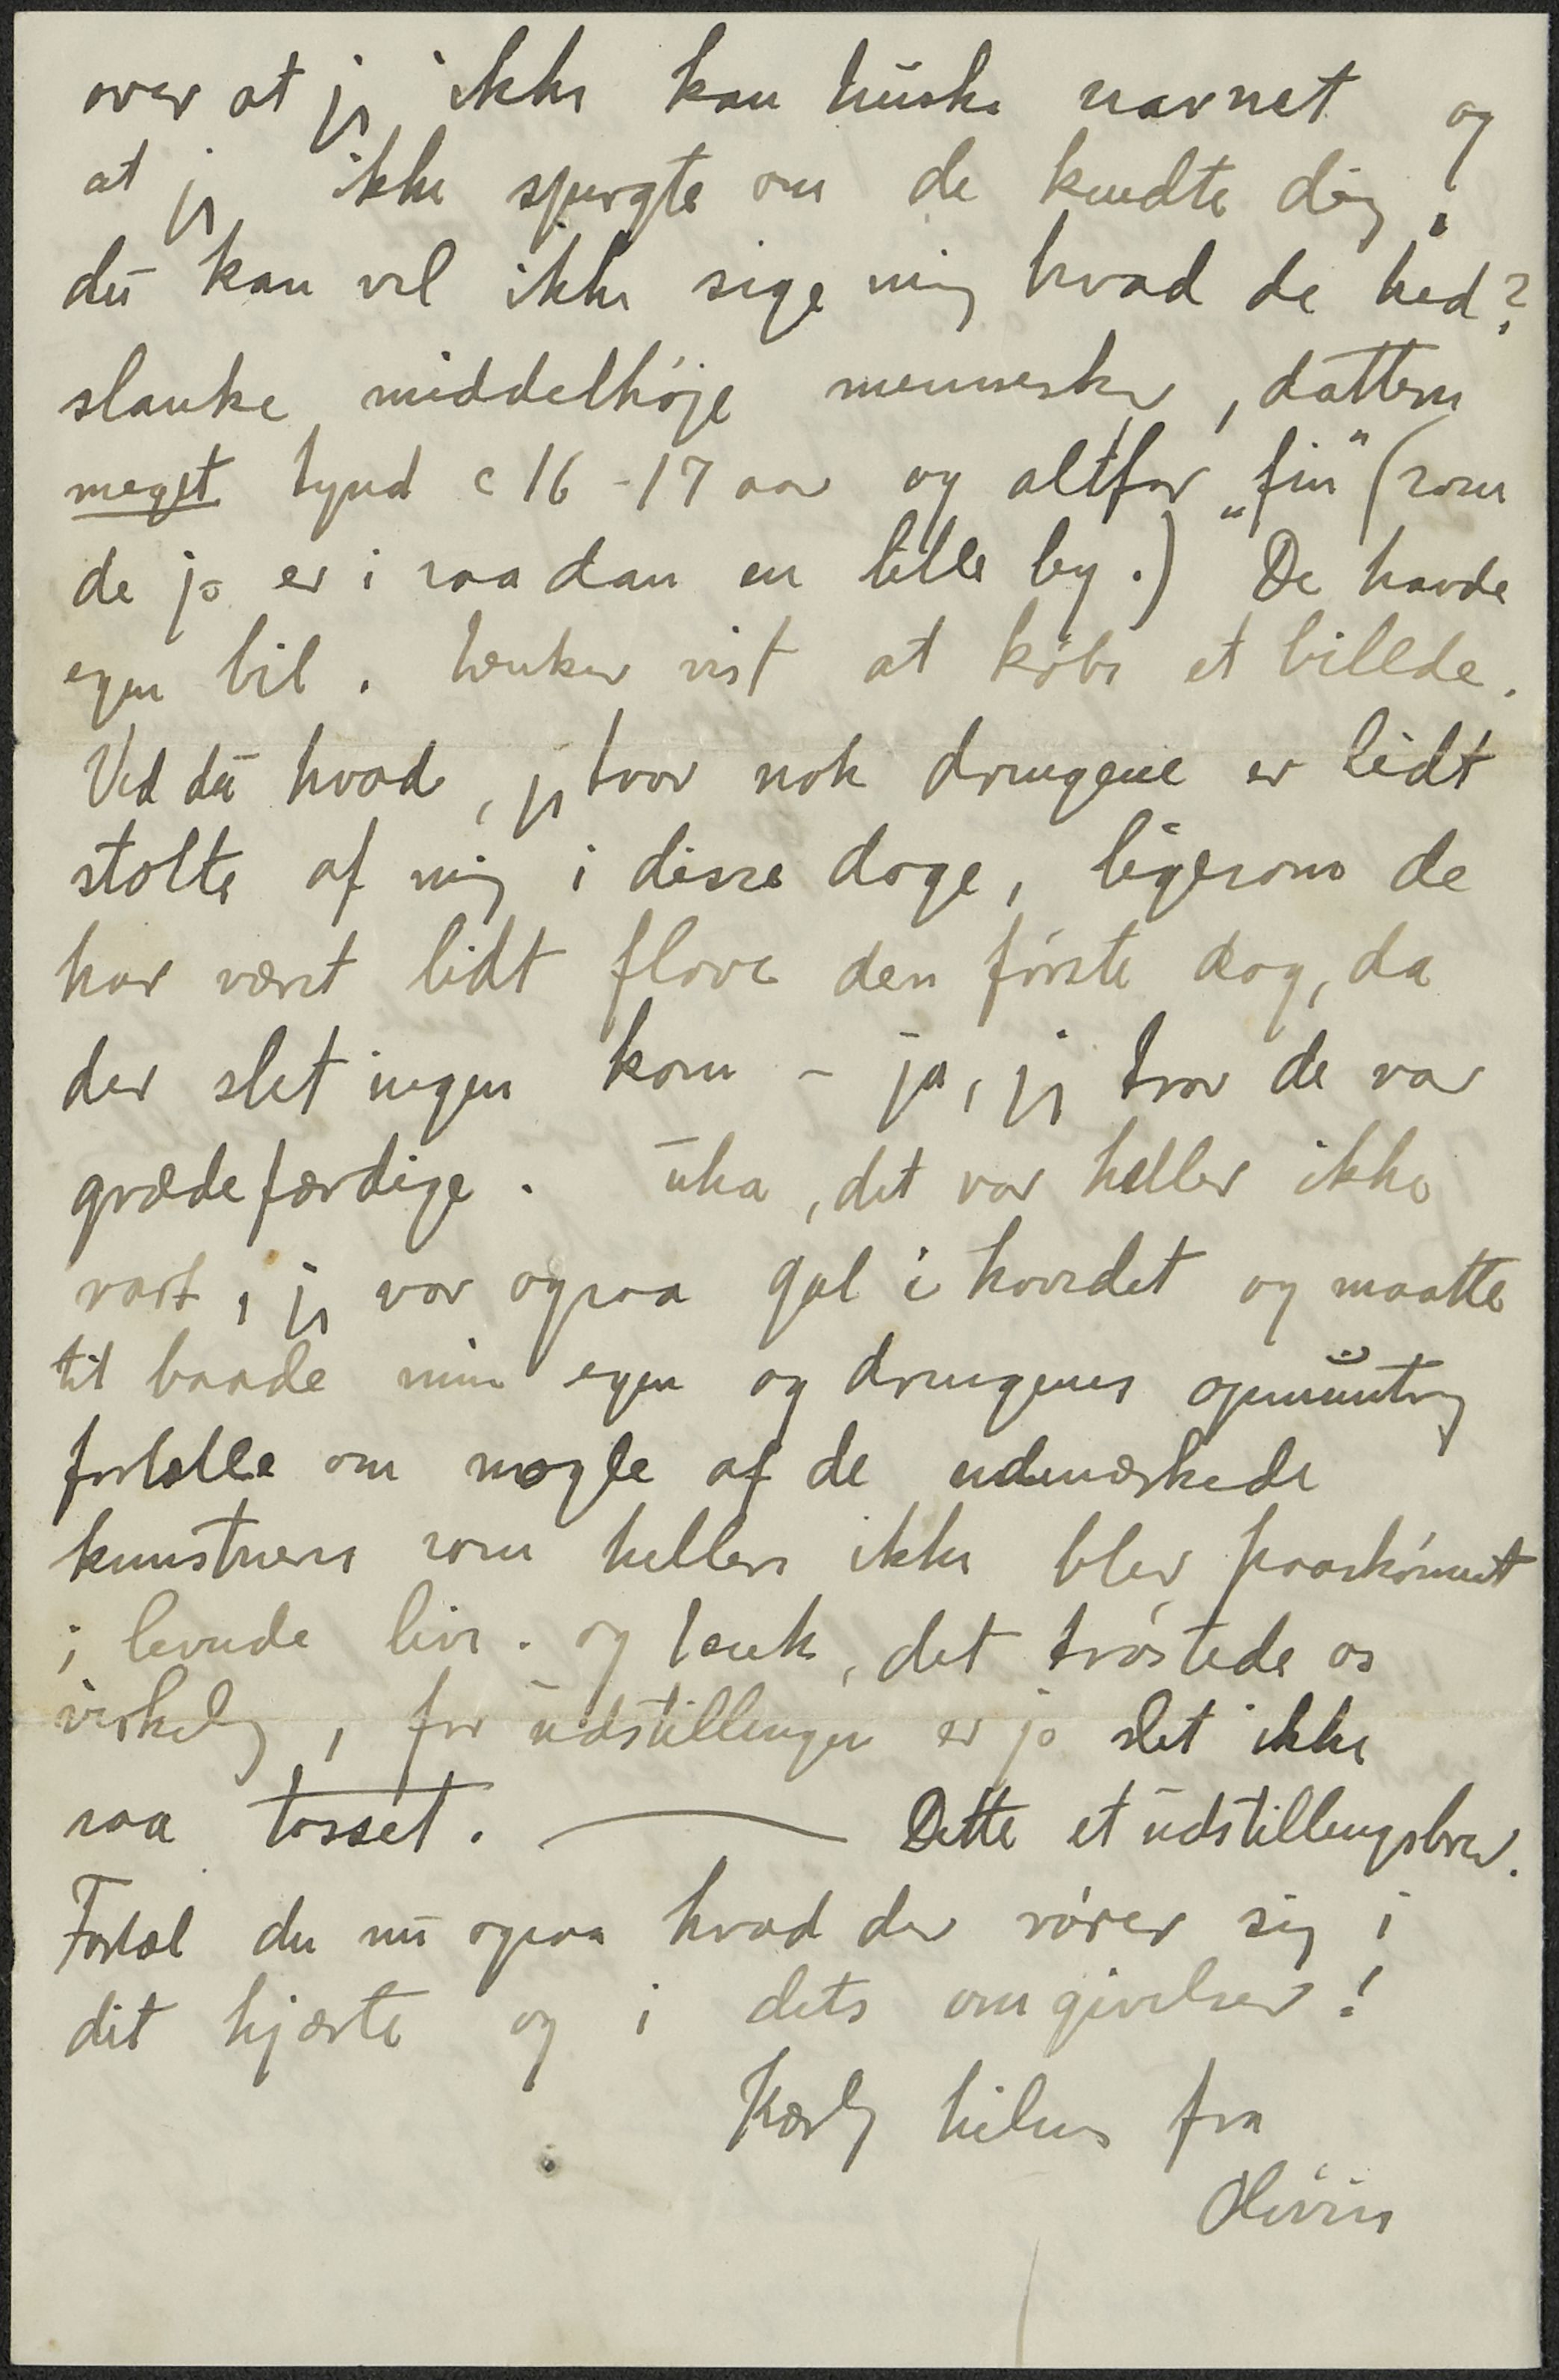 over at jeg ikke kan huske navnet og
at jeg ikke spurgte om de kendte dig,
du kan vel ikke sige mig hvad de hed?
slanke middelhøje mennesker, datteren
meget tynd c 16-17 aar og altfor „fin“ (som
de jo er i saadan en lille by.) De havde
egen bil. tænker vist at købe et billede.
Ved du hvad, jeg tror nok drengene er lidt
stolte af mig i disse dage, ligesom de
har været lidt flove den første dag, da
der slet ingen kom – ja, jeg tror de var
grædefærdige. uha, det var heller ikke
rart, jeg var ogsaa gal i hovedet og maatte
til baade min egen og drengenes opmuntring
fortælle om nogle af de udmærkede
kunstnere som hellere ikke blev paaskønnet
i levende live. og tænk, det trøstede os
virkelig, for udstillingen er jo slet ikke
saa tosset. — Dette et udstillingsbrev.
Fortæl du nu ogsaa hvad der rører sig i
dit hjærte og i dets omgivelser!
Kærlig hilsen fra